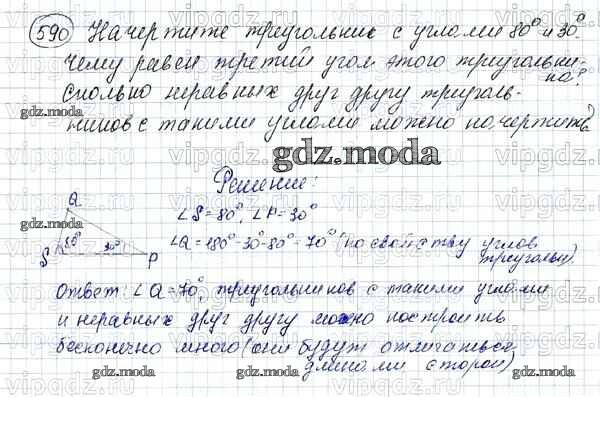 590 Начертите треугольник с углами 80° и 30°.
Чему равен третий угол этого треугольни-
ка?
Сколько неравных друг другу треуголь-
ников с такими углами можно начертить?
gdz.moda
gdz.moda
Решение:
Q
∠S=80°, ∠P=30°
80° 30°
S P
∠Q=180°-30°-80°=70° (по свойству углов
треугольн.)
Ответ: ∠Q=70°, треугольников с такими углами
и неравных друг другу можно построить
бесконечно много (они будут отличаться
длинами сторон)
gdz.moda gdz.moda gdz.moda
vipgdz.ru